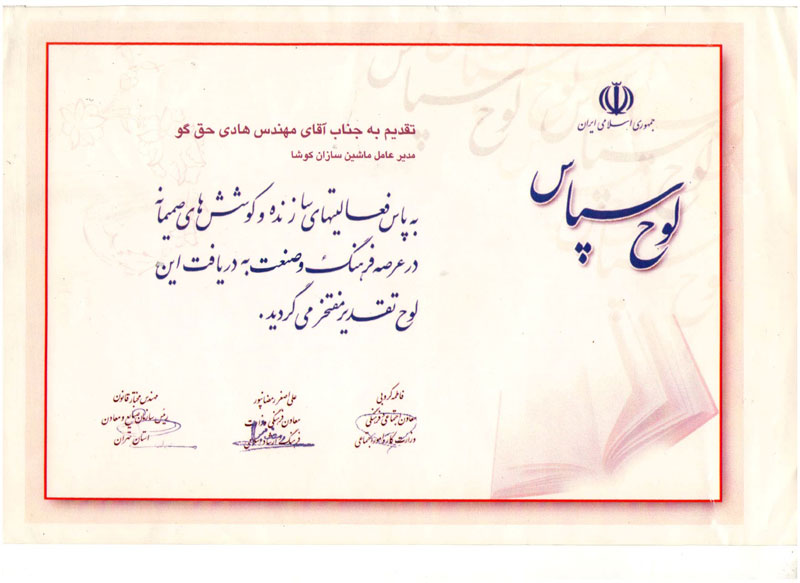 جمهوری اسلامی ایران
لوح سپاس
تقدیم به جناب آقای مهندس هادی حق گو
مدیر عامل ماشین سازان کوشا
به پاس فعالیتهای سازنده و کوشش های صمیمانه
در عرصه فرهنگ و صنعت به دریافت این
لوح تقدیر مفتخر می گردید.
فاطمه کروبی
معاون اجتماعی فرهنگی
وزارت کار و امور اجتماعی
علی اصغر رمضانپور
معاون فرهنگی وزارت
فرهنگ و ارشاد اسلامی
مهندس مختار قانون
رئیس سازمان صنایع و معادن
استان تهران